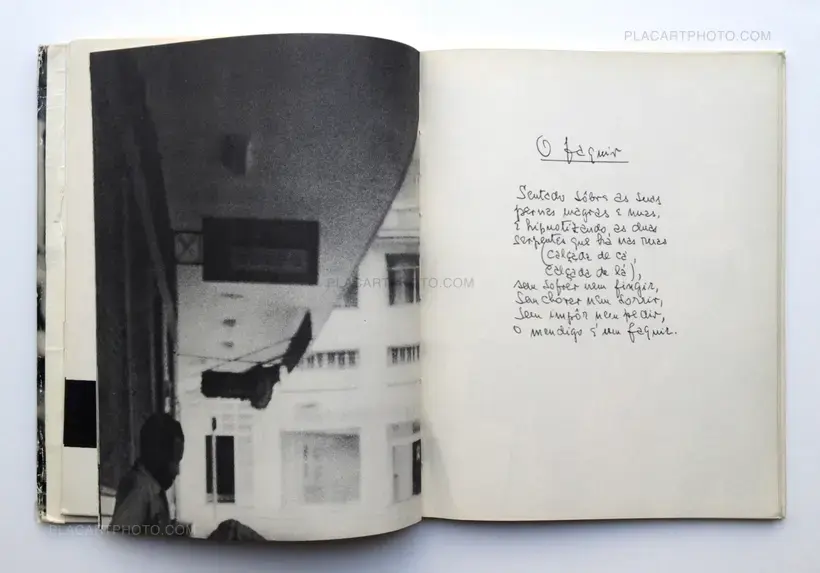 PLACARTPHOTO.COM
O faquir
Sentado sôbre as suas
pernas magras e nuas,
E hipnotizando as duas
serpentes que há nas ruas
(calçada de cá,
calçada de lá),
sem sofrer nem fingir,
sem chorar nem sorrir,
sem impôr nem pedir,
o mendigo é um faquir.
PLACARTPHOTO.COM
PLACARTPHOTO.COM